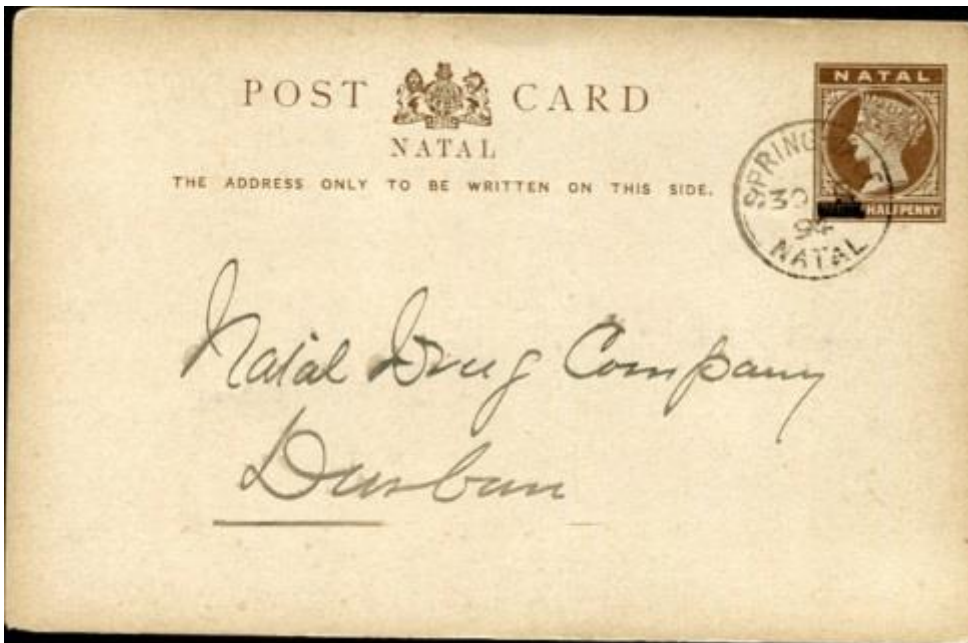 POST CARD
NATAL
THE ADDRESS ONLY TO BE WRITTEN ON THIS SIDE.
NATAL
HALFPENNY
30
94
NATAL
Natal Drug Company
Durban